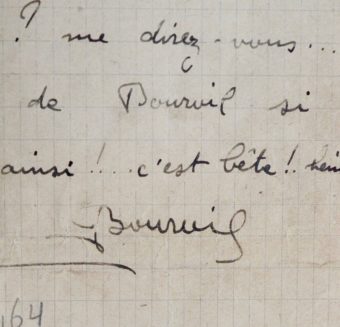 ? me direz-vous...
de Bourvil si
ainsi!... c'est bête!. hein
Bourvil
64